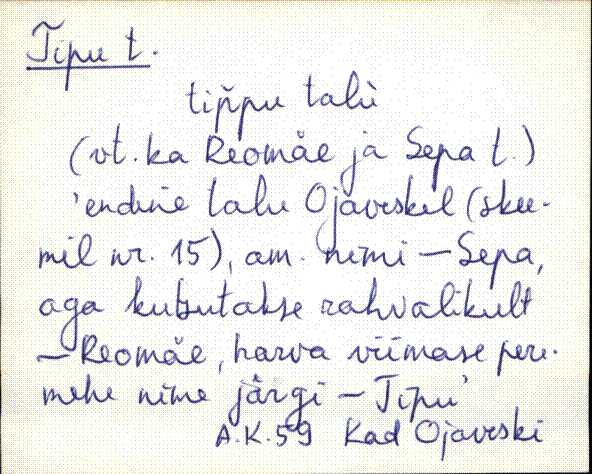 Tipu t.
tip̆pu talù
(vt. ka Reomäe ja Sepa t.)
'endine talu Ojaveskil (skee-
mil nr. 15), am. nimi – Sepa,
aga kutsutakse rahvalikult
– Reomäe, harva viimase pere-
mehe nime järgi – Tipu'
A.K.59 Kad Ojaveski